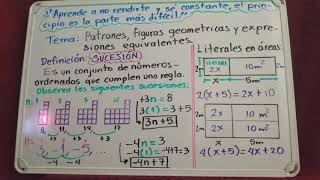 "Aprende a no rendirte y sé constante, el prin-
cipio es la parte más difícil."
Tema: Patrones, figuras geometricas y expre-
siones equivalentes.
Definición: SUCESIÓN
Es un conjunto de números
ordenados que cumplen una regla.
Observar las siguientes sucesiones:
+3n = 8
3(1) = 3 + 5
3n+5
8, 11, 14, 17
+3 +3 +3
-4n = 3
-4(1) = -4+7=3
-4n+7
Literales en áreas:
2x 10m²
x 5m
2(x+5) = 2x + 10
2x 10m²
2x 10m²
x 5m
4(x+5) = 4x + 20